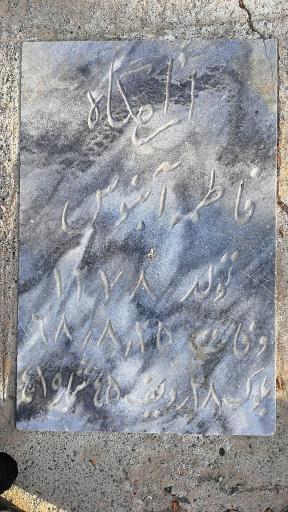 آرامگاه
فاطمه آبنوس
تولد ۱۲۷۸
وفات ۶۸/۸/۱۵
بلوک ۲۸ ردیف ۴۵ شماره ۴۱